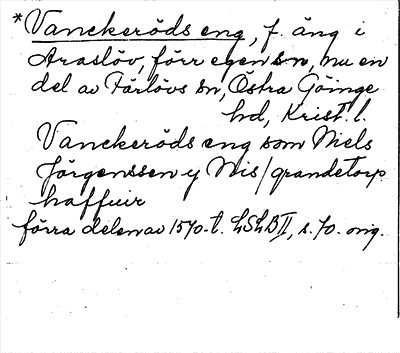 *Vanckeröds eng, f. äng i
Araslöv, förr egen sn, nu en
del av Färlövs sn, Östra Göinge
hd, Krist. l.
Vanckeröds eng som Niels
Jörgenssen y Wis/grandetorp
haffuir
förra delen av 1570-t. LShB II, s. 70. orig.